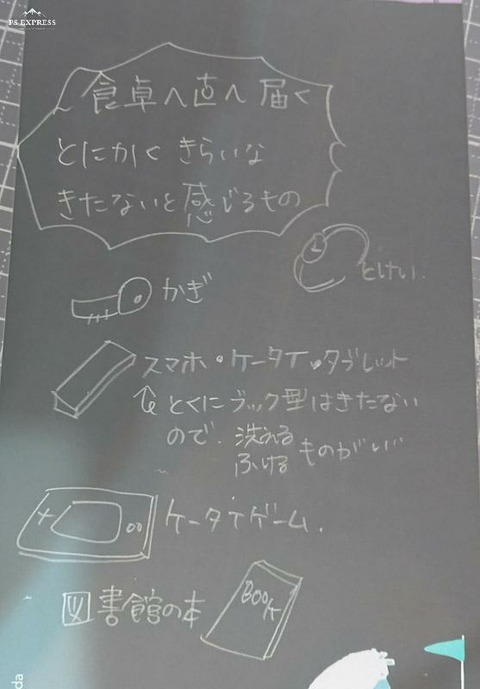 PS EXPRESS
食卓へ直へ届く
とにかくきらいな
きたないと感じるもの
とけい.
かぎ
スマホ・ケータイ・タブレット
とくにブック型はきたない
ので、洗える
ふける
ものがいい
ケータイゲーム.
図書館の本
BOOK
da